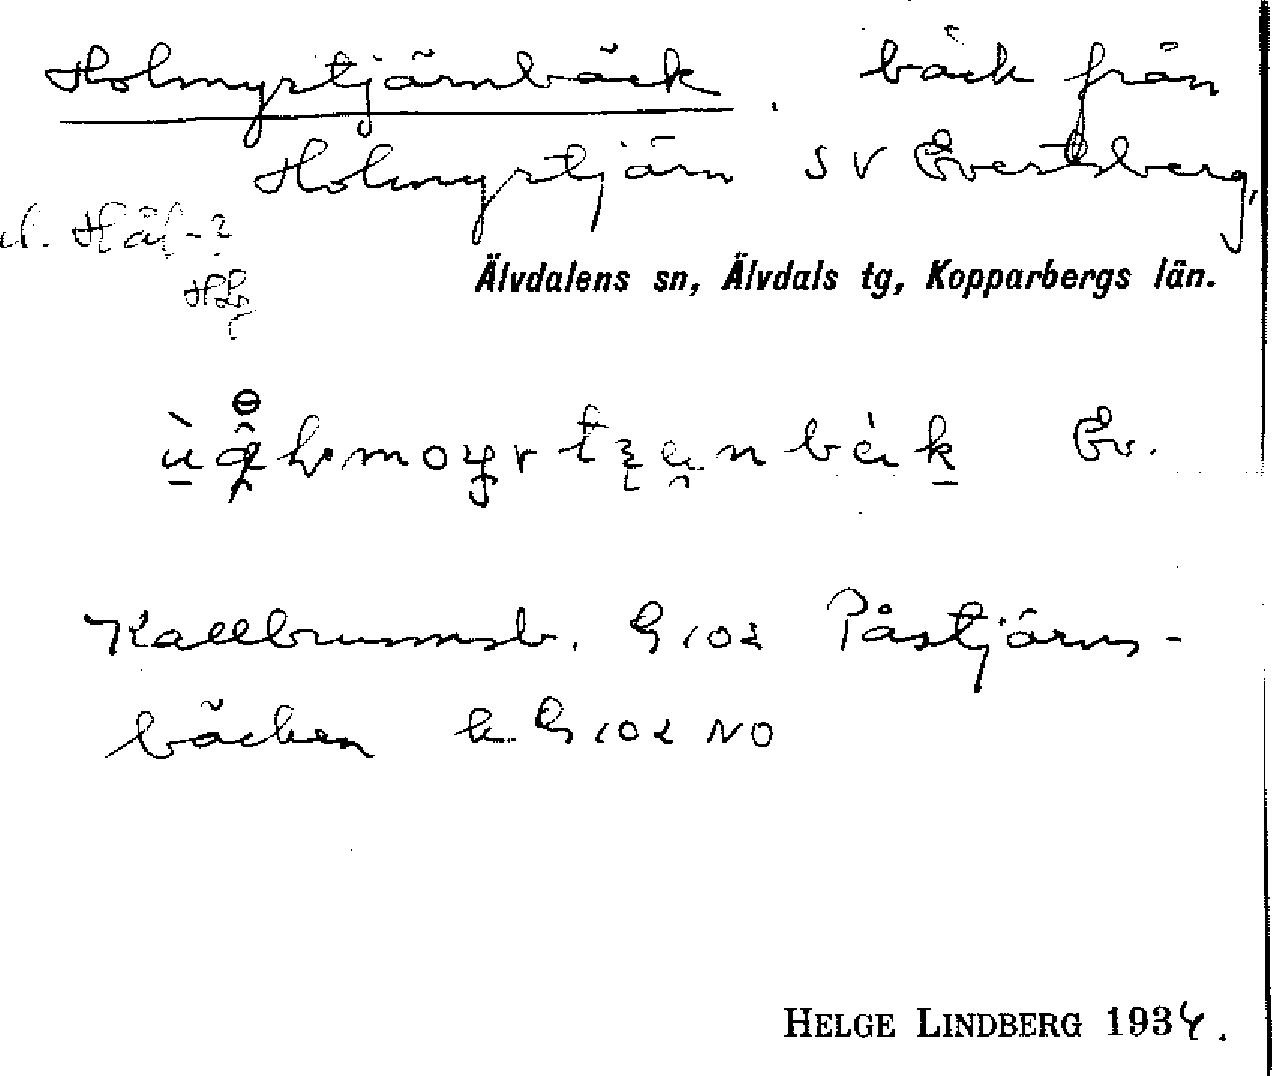 Holmyrtjärnbäck. bäck från
Holmyrtjärn SV Evertsberg,
el. Hål-?
Älvdalens sn, Älvdals tg, Kopparbergs län.
Ev.
Kallbrunnsb. G 102 Påstjärns-
bäcken k. G 102 NO
HELGE LINDBERG 1934.